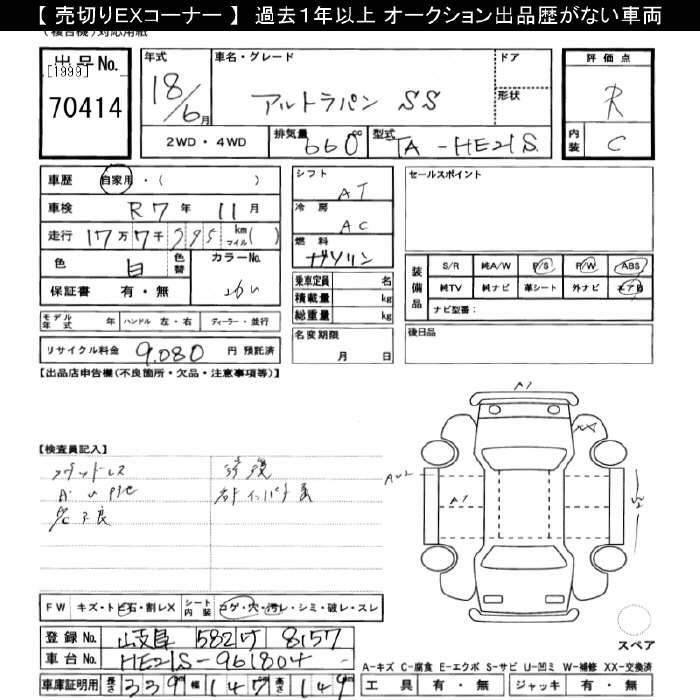 【 売切りEXコーナー 】 過去１年以上 オークション出品歴がない車両
(複合機)対応用紙
出品No.
[1999]
70414
年式
18/6月
車名・グレード
アルトラパン SS
ドア
形状
評価点
R
内装
C
2WD・4WD
排気量
660cc
型式
TA-HE21S
車歴
自家用・( )
車検
R7年 11月
走行
17万7千995 km マイル( )
色
白
色替
カラーNo.
26U
保証書 有・無
モデル年式 年 ハンドル 左・右 ディーラー・並行
リサイクル料金 9,080 円 預託済
シフト
AT
冷房
AC
燃料
ガソリン
乗車定員 名
積載量 kg
総重量 kg
名変期限
月 日
セールスポイント
装備品
S/R 純A/W P/S P/W ABS
純TV 純ナビ 革シート 外ナビ エアB
ナビ型番：
後日品
【出品店申告欄(不良箇所・欠品・注意事項等)】
【検査員記入】
修復
A1
XX
A1
FW キズ・トビ石・割レX シート内装 コゲ・穴・汚レ・シミ・破レ・スレ
登録No. 岐阜 582 8157
車台No. HE21S-961804
車庫証明用 長さ 339 幅 147 高さ 149
スペア
A-キズ C-腐食 E-エクボ S-サビ U-凹ミ W-補修 XX-交換済
工具 有・無 ジャッキ 有・無